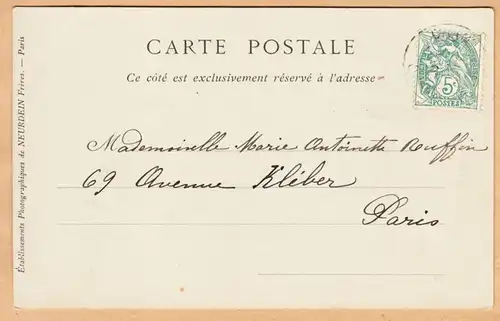 CARTE POSTALE
Ce côté est exclusivement réservé à l'adresse
5c
POSTES
Mademoiselle Marie Antoinette Ruffin
69 Avenue Kléber
Paris
Établissements Photographiques de NEURDEIN Frères. — Paris